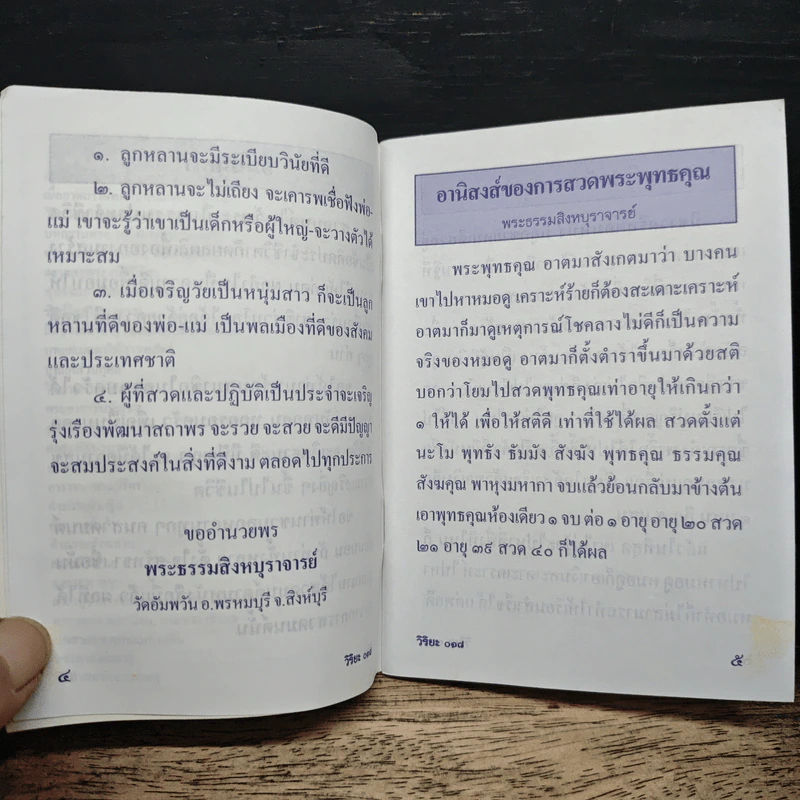 ๑. ลูกหลานจะมีระเบียบวินัยที่ดี
๒. ลูกหลานจะไม่เถียง จะเคารพเชื่อฟังพ่อ-
แม่ เขาจะรู้ว่าเขาเป็นเด็กหรือผู้ใหญ่-จะวางตัวได้
เหมาะสม
๓. เมื่อเจริญวัยเป็นหนุ่มสาว ก็จะเป็นลูก
หลานที่ดีของพ่อ-แม่ เป็นพลเมืองที่ดีของสังคม
และประเทศชาติ
๔. ผู้ที่สวดและปฏิบัติเป็นประจำจะเจริญ
รุ่งเรืองพัฒนาสถาพร จะรวย จะสวย จะดีมีปัญญา
จะสมประสงค์ในสิ่งที่ดีงาม ตลอดไปทุกประการ
ขออำนวยพร
พระธรรมสิงหบุราจารย์
วัดอัมพวัน อ.พรหมบุรี จ.สิงห์บุรี
วิริยะ ๐๑๘
๔
อานิสงส์ของการสวดพระพุทธคุณ
พระธรรมสิงหบุราจารย์
พระพุทธคุณ อาตมาสังเกตมาว่า บางคน
เขาไปหาหมอดู เคราะห์ร้ายก็ต้องสะเดาะเคราะห์
อาตมาก็มาดูเหตุการณ์โชคลางไม่ดีก็เป็นความ
จริงของหมอดู อาตมาก็ตั้งตำราขึ้นมาด้วยสติ
บอกว่าโยมไปสวดพุทธคุณเท่าอายุให้เกินกว่า
๑ ให้ได้ เพื่อให้สติดี เท่าที่ใช้ได้ผล สวดตั้งแต่
นะโม พุทธัง ธัมมัง สังฆัง พุทธคุณ ธรรมคุณ
สังฆคุณ พาหุงมหากา จบแล้วย้อนกลับมาข้างต้น
เอาพุทธคุณห้องเดียว ๑ จบ ต่อ ๑ อายุ อายุ ๒๐ สวด
๒๑ อายุ ๓๙ สวด ๔๐ ก็ได้ผล
วิริยะ ๐๑๘
๕